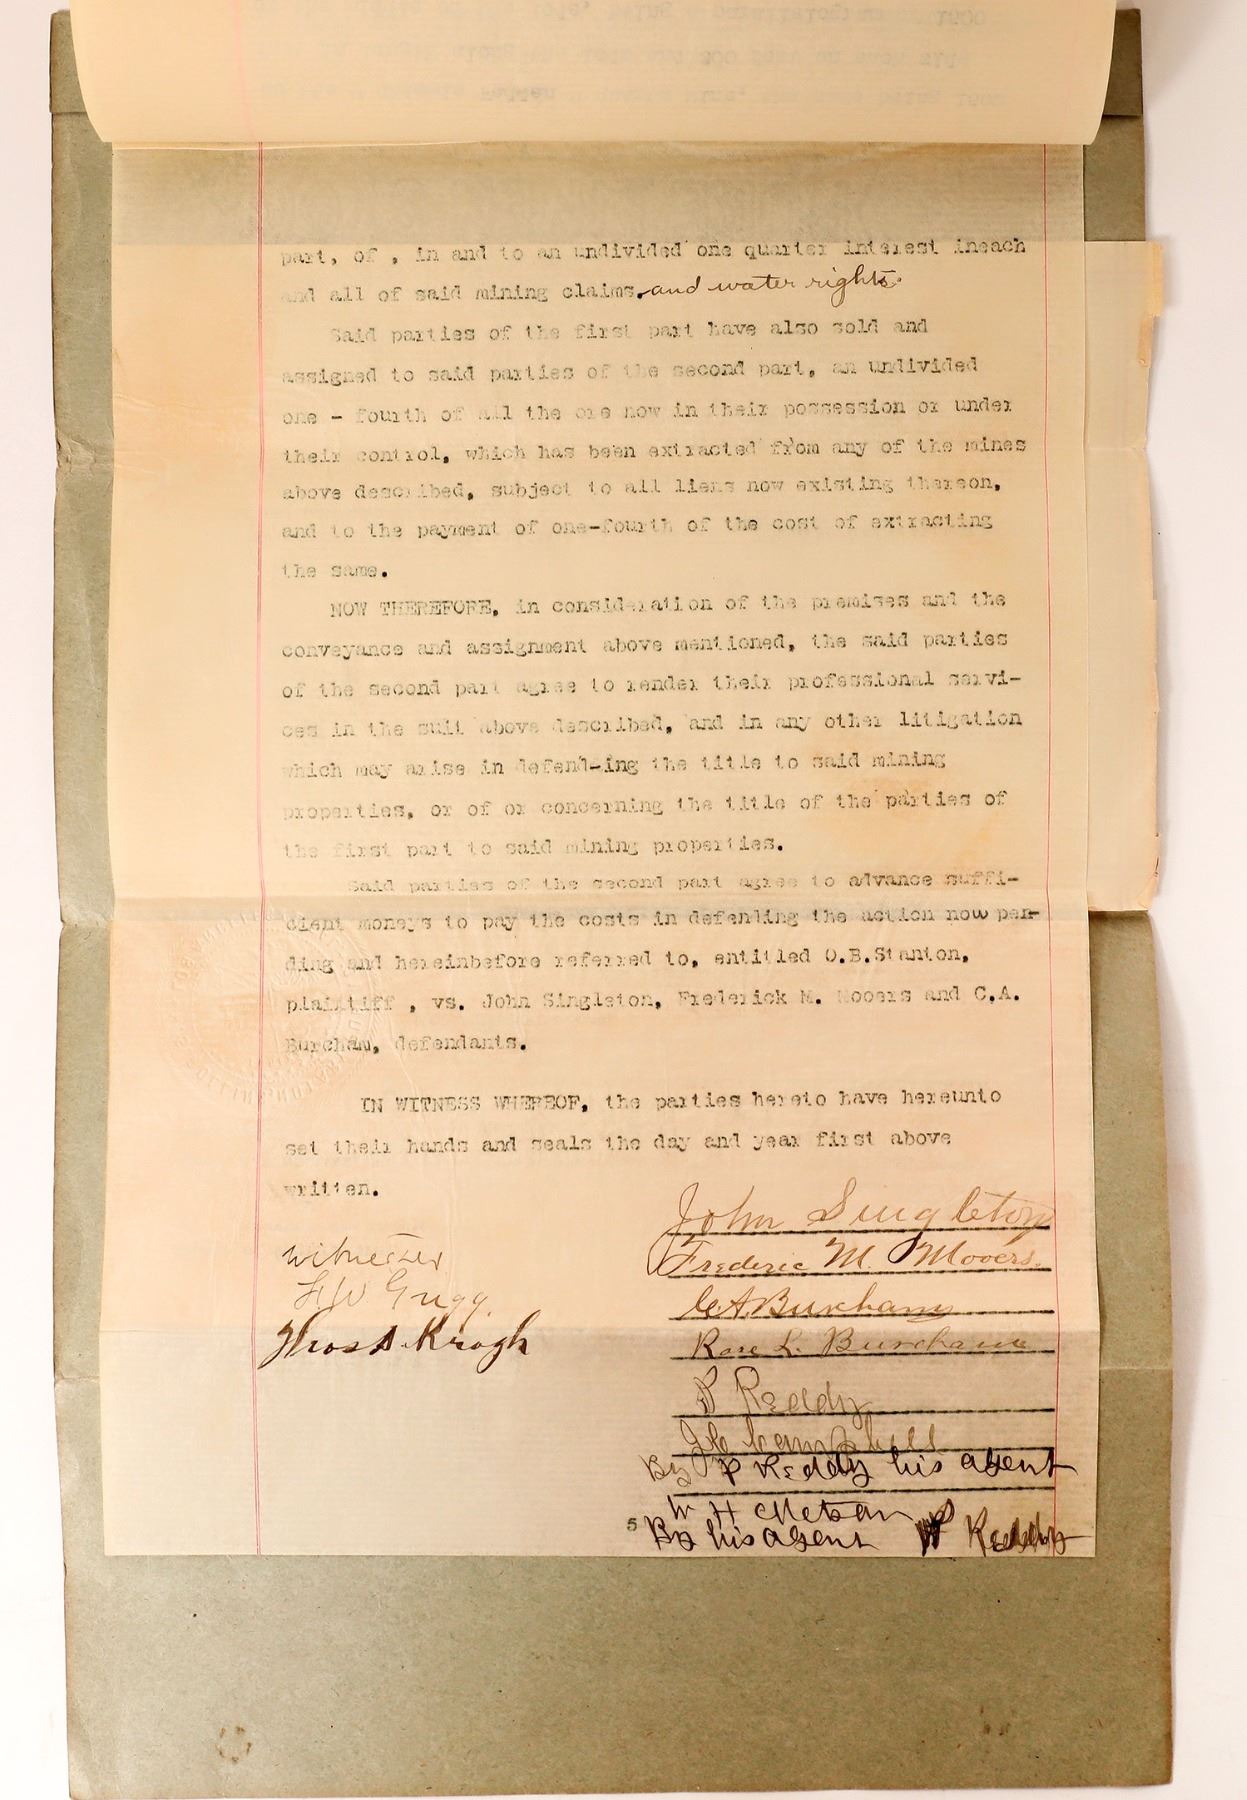 part, of , in and to an undivided one quarter interest ineach
and all of said mining claims. and water rights.
Said parties of the first part have also sold and
assigned to said parties of the second part, an undivided
one - fourth of all the ore now in their possession or under
their control, which has been extracted from any of the mines
above described, subject to all liens now existing thereon,
and to the payment of one-fourth of the cost of extracting
the same.
NOW THEREFORE, in consideration of the premises and the
conveyance and assignment above mentioned, the said parties
of the second part agree to render their professional servi-
ces in the suit above described, and in any other litigation
which may arise in defend-ing the title to said mining
properties, or of or concerning the title of the parties of
the first part to said mining properties.
Said parties of the second part agree to advance suffi-
cient moneys to pay the costs in defending the action now pen-
ding and hereinbefore referred to, entitled O.B.Stanton,
plaintiff , vs. John Singleton, Frederick M. Mooers and C.A.
Burcham, defendants.
IN WITNESS WHEREOF, the parties hereto have hereunto
set their hands and seals the day and year first above
written.
John Singleton
Witnesses
Frederic M. Mooers.
C.A. Burcham
Thos A. Krogh
Rose L. Burcham
P Reddy
J C Campbell
By P Reddy his agent
W H Metson
5
By his agent P Reddy